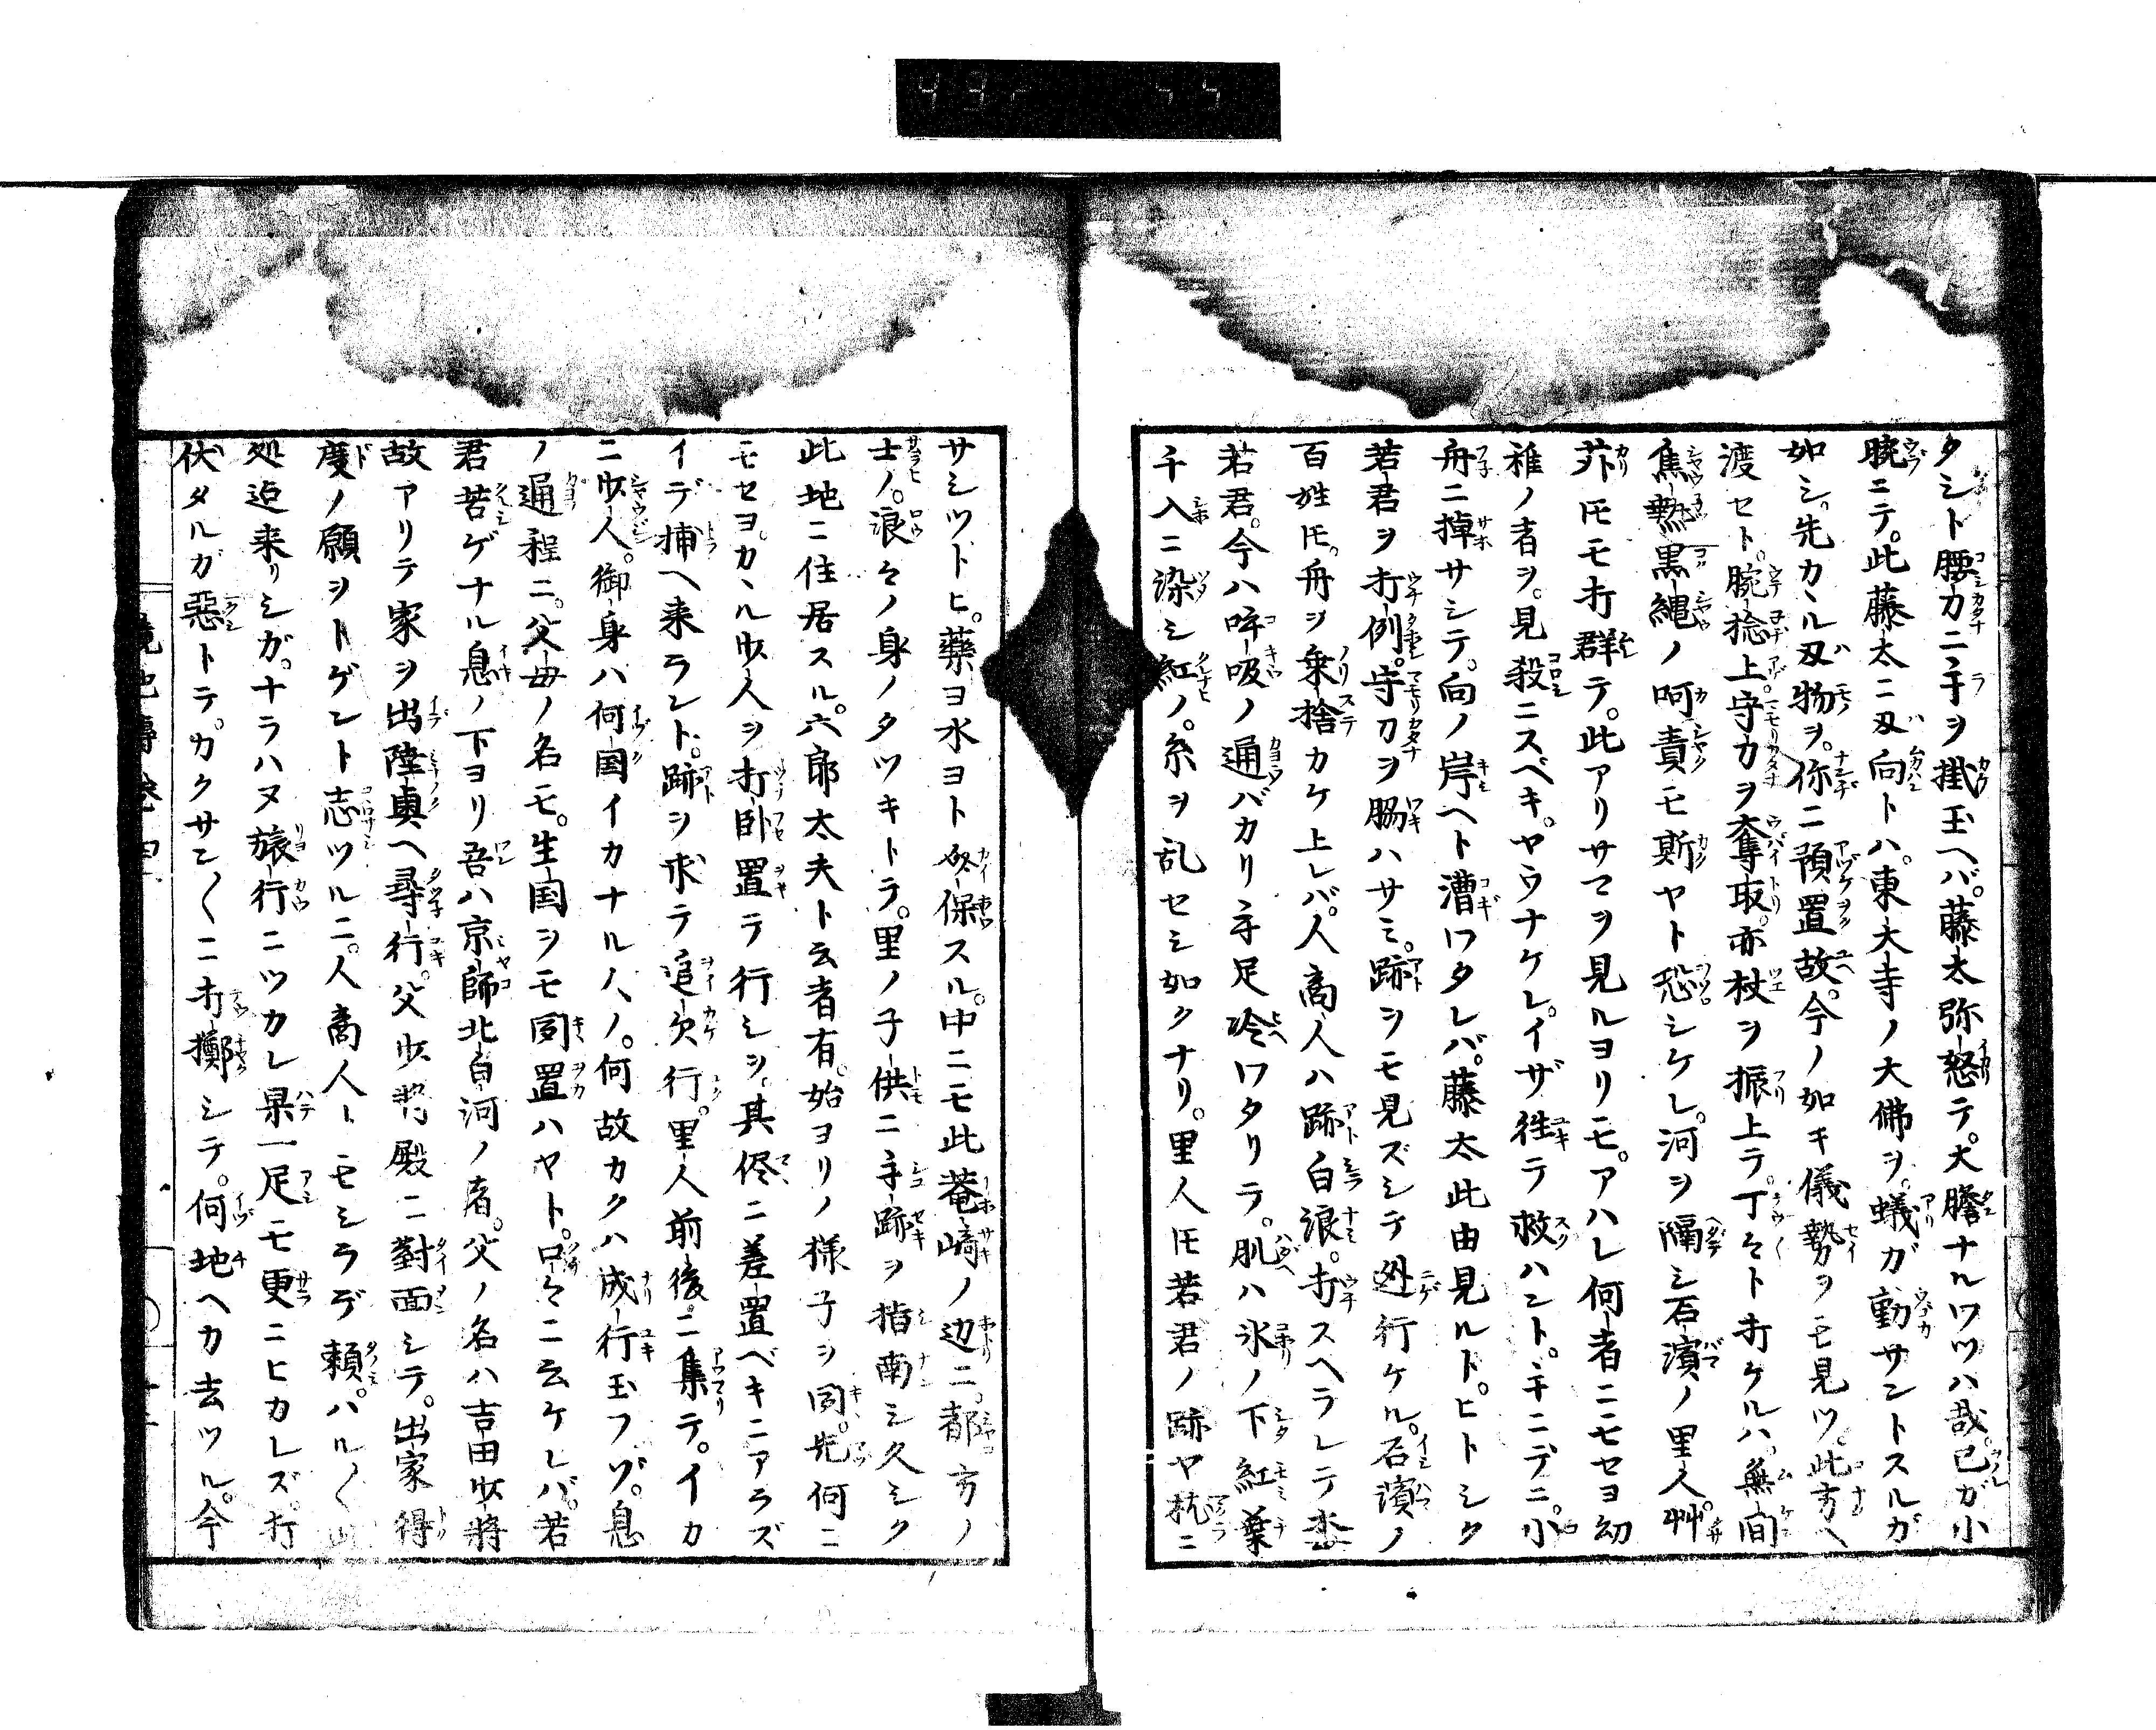 タシト腰刀ニ手ヲ掛玉ヘバ。藤太弥怒テ。大膽ナルワツハ哉。己ガ小
腕ニテ。此藤太ニ刄向トハ。東大寺ノ大佛ヲ。蟻ガ動サントスルガ
如シ。先カヽル刄物ヲ。你ニ預置故。今ノ如キ儀勢ヲモ見ツ。此方ヘ
渡セト。腕捻上守刀ヲ奪取。亦杖ヲ振上テ。丁〻ト打ケルハ。無間
焦熱黒縄ノ呵責モ斯ヤト恐シケレ。河ヲ隔シ石濱ノ里人。艸
苅𪜈モ打群テ。此アリサマヲ見ルヨリモ。アハレ何者ニモセヨ幼
稚ノ者ヲ。見殺ニスベキ。ヤウナケレ。イザ徃テ救ハント。手ニデニ。小
舟ニ掉サシテ。向ノ岸ヘト漕ワタレバ。藤太此由見ルト。ヒトシク
若君ヲ打例。守刀ヲ脇ハサミ。跡ヲモ見ズシテ迯行ケル。石濱ノ
百姓𪜈。舟ヲ乗捨カケ上レバ。人商人ハ跡白浪。打スヘラレテ
若君。今ハ呼吸ノ通バカリ手足冷ワタリテ。肌ハ氷ノ下紅葉
千入ニ染シ紅ノ。糸ヲ乱セシ如クナリ。里人𪜈若君ノ跡ヤ枕ニ
サシツトヒ。藥ヨ水ヨト保スル。中ニモ此菴崎ノ辺ニ。都方ノ
士ノ。浪〻ノ身ノタツキトテ。里ノ子供ニ手跡ヲ指南シ久シク
此地ニ住居スル。六郎太夫ト云者有。始ヨリノ様子ヲ問。先何ニ
モセヨ。カヽル少人ヲ打卧置テ行シヲ。其侭ニ差置ベキニアラズ
イデ捕ヘ来ラント。跡ヲ求テ追欠行。里人前後ニ集テ。イカ
ニ少人。御身ハ何国イカナル人ノ。何故カクハ成行玉フゾ。息
ノ通程ニ。父母ノ名モ。生国ヲモ聞置ハヤト。口〻ニ云ケレバ。若
君苦ゲナル息ノ下ヨリ吾ハ京師北白河ノ者。父ノ名ハ吉田少将
故アリテ家ヲ出陸奥ヘ尋行。父少将殿ニ對面シテ。出家得
度ノ願ヲトゲント志ツルニ。人商人トモシラデ頼。ハル〱此
処迠来リシガ。ナラハヌ旅行ニツカレ果一足モ更ニヒカレズ。打
伏タルガ惡トテ。カクサン〱ニ打擲シテ。何地ヘカ去ツル。今